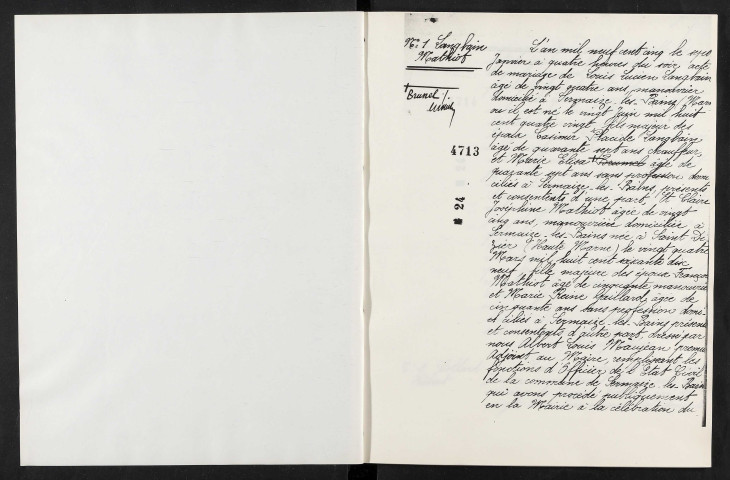 No 1 Langbain
Mathiot
+ Brunel
4713
24
L'an mil neuf cent cinq le
Janvier à quatre heures du soir, acte
de mariage de Louis Lucien Langbain
âgé de vingt quatre ans, manouvrier
domicilié à Sermaize-les-Bains, Marne
où il est né le vingt Juin mil huit
cent quatre vingt, fils majeur des
époux Casimir Claude Langbain
âgé de quarante sept ans chauffeur,
et Marie Elisa + Brunel âgée de
quarante sept ans sans profession domi
ciliés à Sermaize-les-Bains, présents
et consentents d'une part. Et Claire
Joséphine Mathiot âgée de vingt
cinq ans, manouvrière domiciliée à
Sermaize-les-Bains née à Saint Di
zier (Haute Marne) le vingt quatre
Mars mil huit cent soixante dix
neuf, fille majeure des époux François
Mathiot âgé de cinquante manouvrier
et Marie Reine Feuillard, âgée de
cinquante ans sans profession domi-
ciliés à Sermaize-les-Bains présents
et consentents d'autre part, dressé par
nous Albert Louis Maujean premier
Adjoint au Maire, remplissant les
fonctions d'Officier de l'Etat Civil
de la commune de Sermaize-les-Bains
qui avons procédé publiquement
en la Mairie à la célébration du